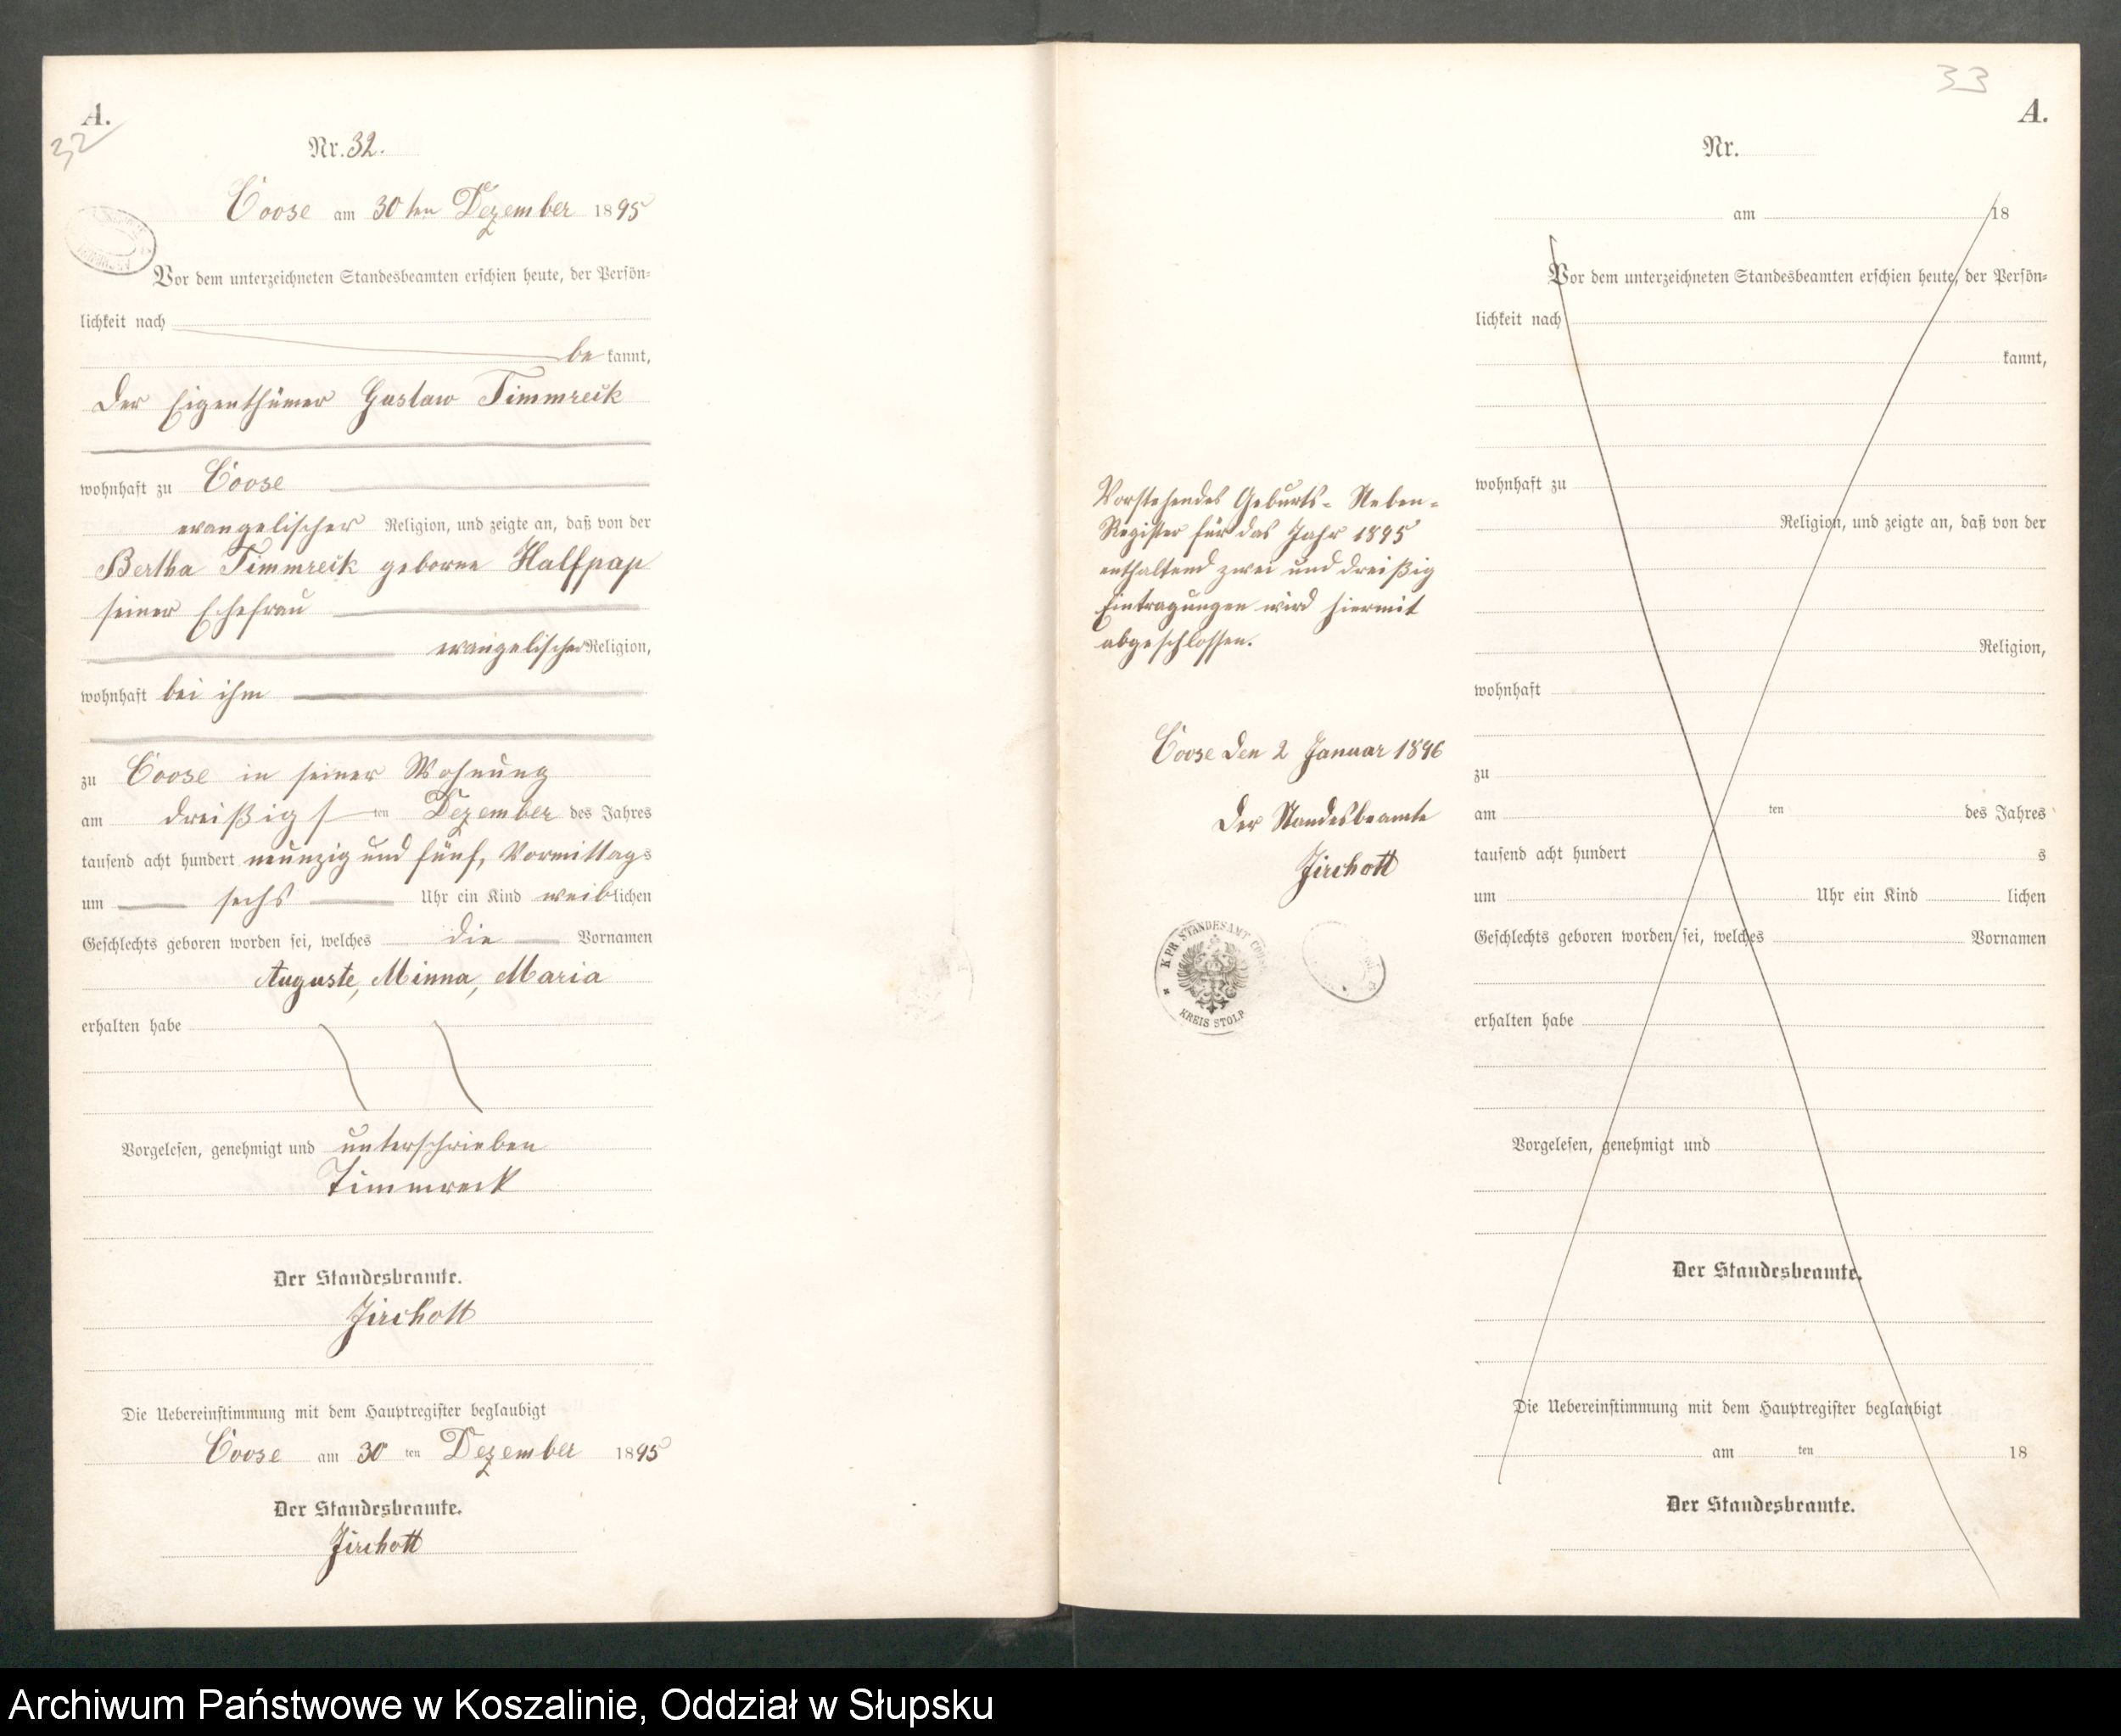 A.
32
Nr. 32.
Coose am 30ten Dezember 1895
Vor dem unterzeichneten Standesbeamten erschien heute, der Persön-
lichkeit nach
be kannt,
der Eigenthümer Gustaw Timmreck
wohnhaft zu Coose
evangelischer Religion, und zeigte an, daß von der
Bertha Timmreck geborne Halfpap
seiner Ehefrau
evangelischer Religion,
wohnhaft bei ihm
zu Coose in seiner Wohnung
am dreißigsten Dezember des Jahres
tausend acht hundert neunzig und fünf, Vormittags
um sechs Uhr ein Kind weiblichen
Geschlechts geboren worden sei, welches die Vornamen
Auguste, Minna, Maria
erhalten habe
Vorgelesen, genehmigt und unterschrieben
Timmreck
Der Standesbeamte.
Jirchott
Die Uebereinstimmung mit dem Hauptregister beglaubigt
Coose am 30 ten Dezember 1895
Der Standesbeamte.
Jirchott
Vorstehendes Geburts-Neben-
Register für das Jahr 1895
enthaltend zwei und dreißig
Eintragungen wird hiermit
abgeschlossen.
Coose den 2 Januar 1896
Der Standesbeamte
Jirchott
KPR STANDESAMT
KREIS STOLP
33
A.
Nr.
am 18
Vor dem unterzeichneten Standesbeamten erschien heute, der Persön-
lichkeit nach
kannt,
wohnhaft zu
Religion, und zeigte an, daß von der
Religion,
wohnhaft
zu
am ten des Jahres
tausend acht hundert s
um Uhr ein Kind lichen
Geschlechts geboren worden sei, welches Vornamen
erhalten habe
Vorgelesen, genehmigt und
Der Standesbeamte.
Die Uebereinstimmung mit dem Hauptregister beglaubigt
am ten 18
Der Standesbeamte.
Archiwum Państwowe w Koszalinie, Oddział w Słupsku